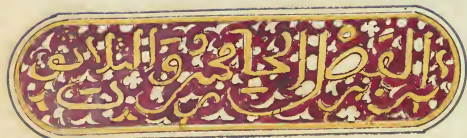 الفصل الخامس والثلاثون